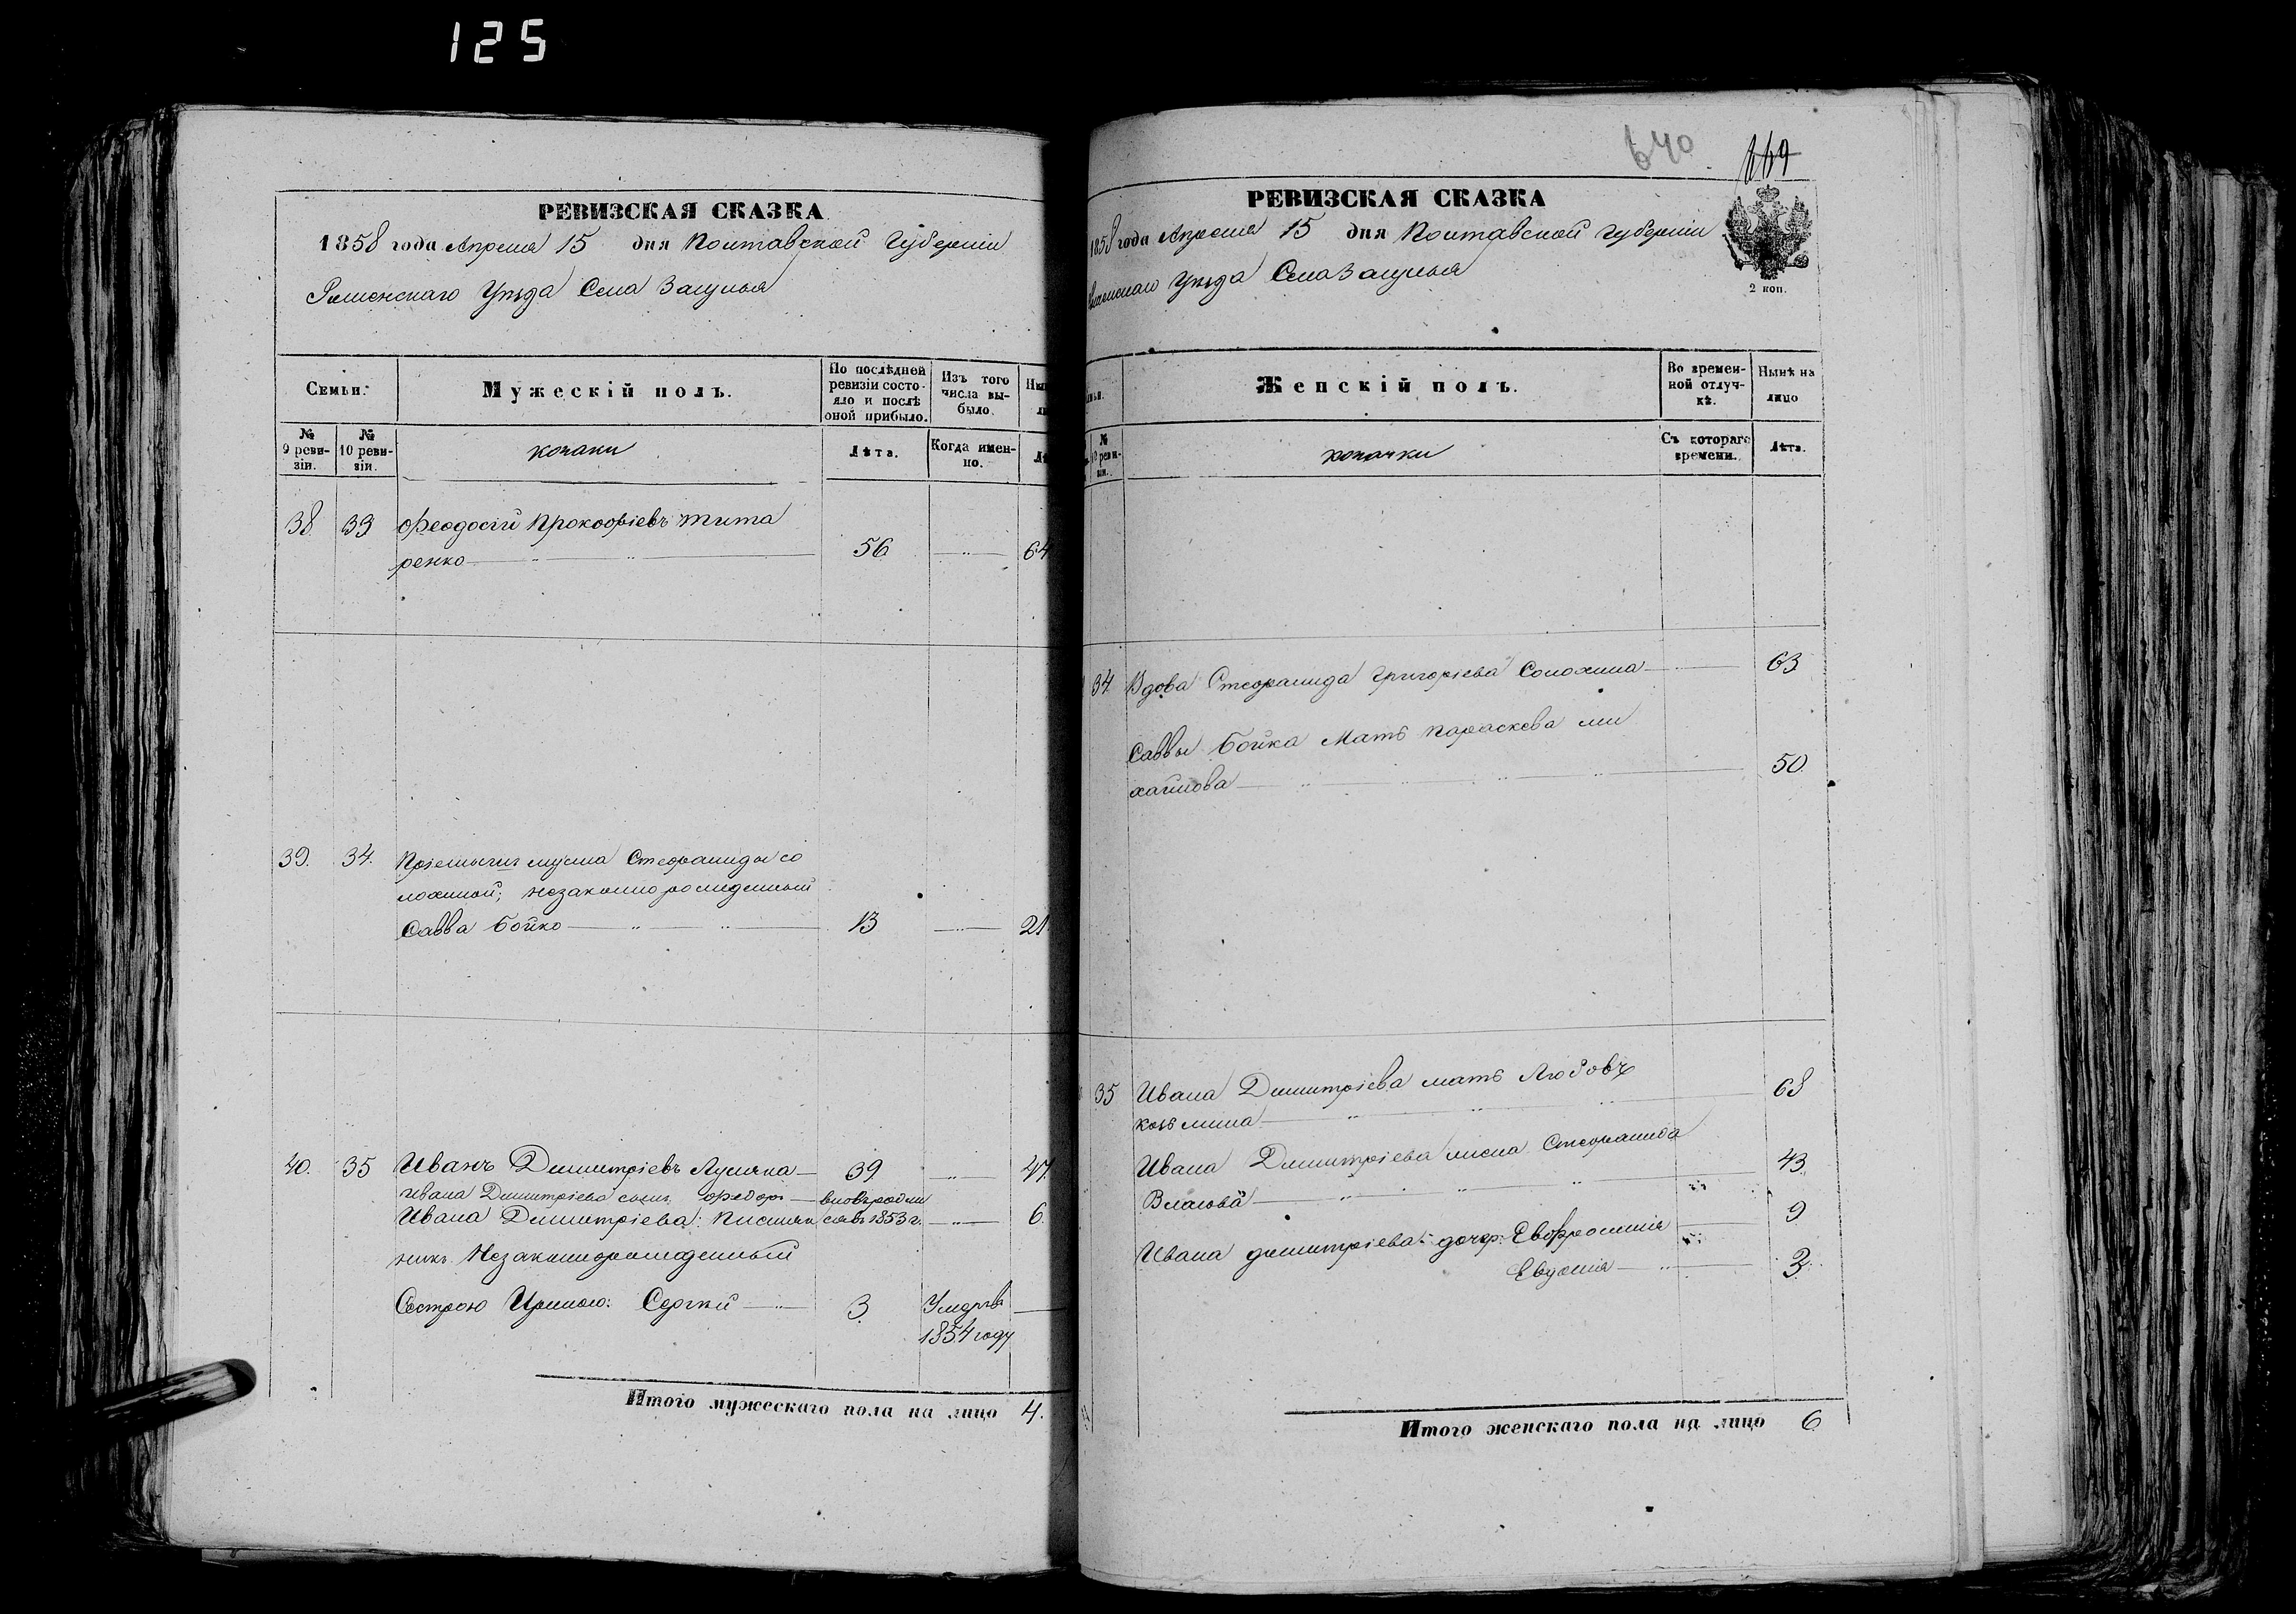 125
РЕВИЗСКАЯ СКАЗКА
1858 года Апреля 15 дня Полтавской Губерніи
Роменскаго Уѣзда Села Загунья
Семьи.
Мужескій полъ.
По послѣдней ревизіи состояло и послѣ оной прибыло.
Изъ того числа выбыло.
№ 9 ревизіи.
№ 10 ревизіи.
козаки
Лѣта.
Когда именно.
38 33 Феодосій Прокофіевъ Тита
ренко 56 64
39. 34. Пріемышъ мужа Стефаниды со
лохиной; незаконнорожденный
Савва Бойко 13 21
40. 35 Иванъ Димитріевъ 39 47
Ивана Димитріева сынъ Федоръ вновь родил
Ивана Димитріева: племян ся въ 1853 г. 6.
никъ Незаконнорожденный
Сестрою Ириною: Сергѣй 3 Умеръ въ
1854 году
Итого мужескаго пола на лицо 4.
640
669
РЕВИЗСКАЯ СКАЗКА
1858 года Апреля 15 дня Полтавской Губерніи
Роменскаго Уѣзда Села Загунья
2 коп.
Женскій полъ.
Во временной отлучкѣ.
Нынѣ на лицо
№ 10 ревизіи.
козачки
Съ котораго времени.
Лѣта.
34. Вдова Стефанида Григоріева Солохина 63
Саввы Бойка Мать Параскева Ми
хайлова 50.
35 Ивана Димитріева мать Любовь
Козьмина 68
Ивана Димитріева жена Стефанида
Власова 43.
Ивана Димитріева: дочер: Евфросинія 9
Евдокія 3.
Итого женскаго пола на лицо 6